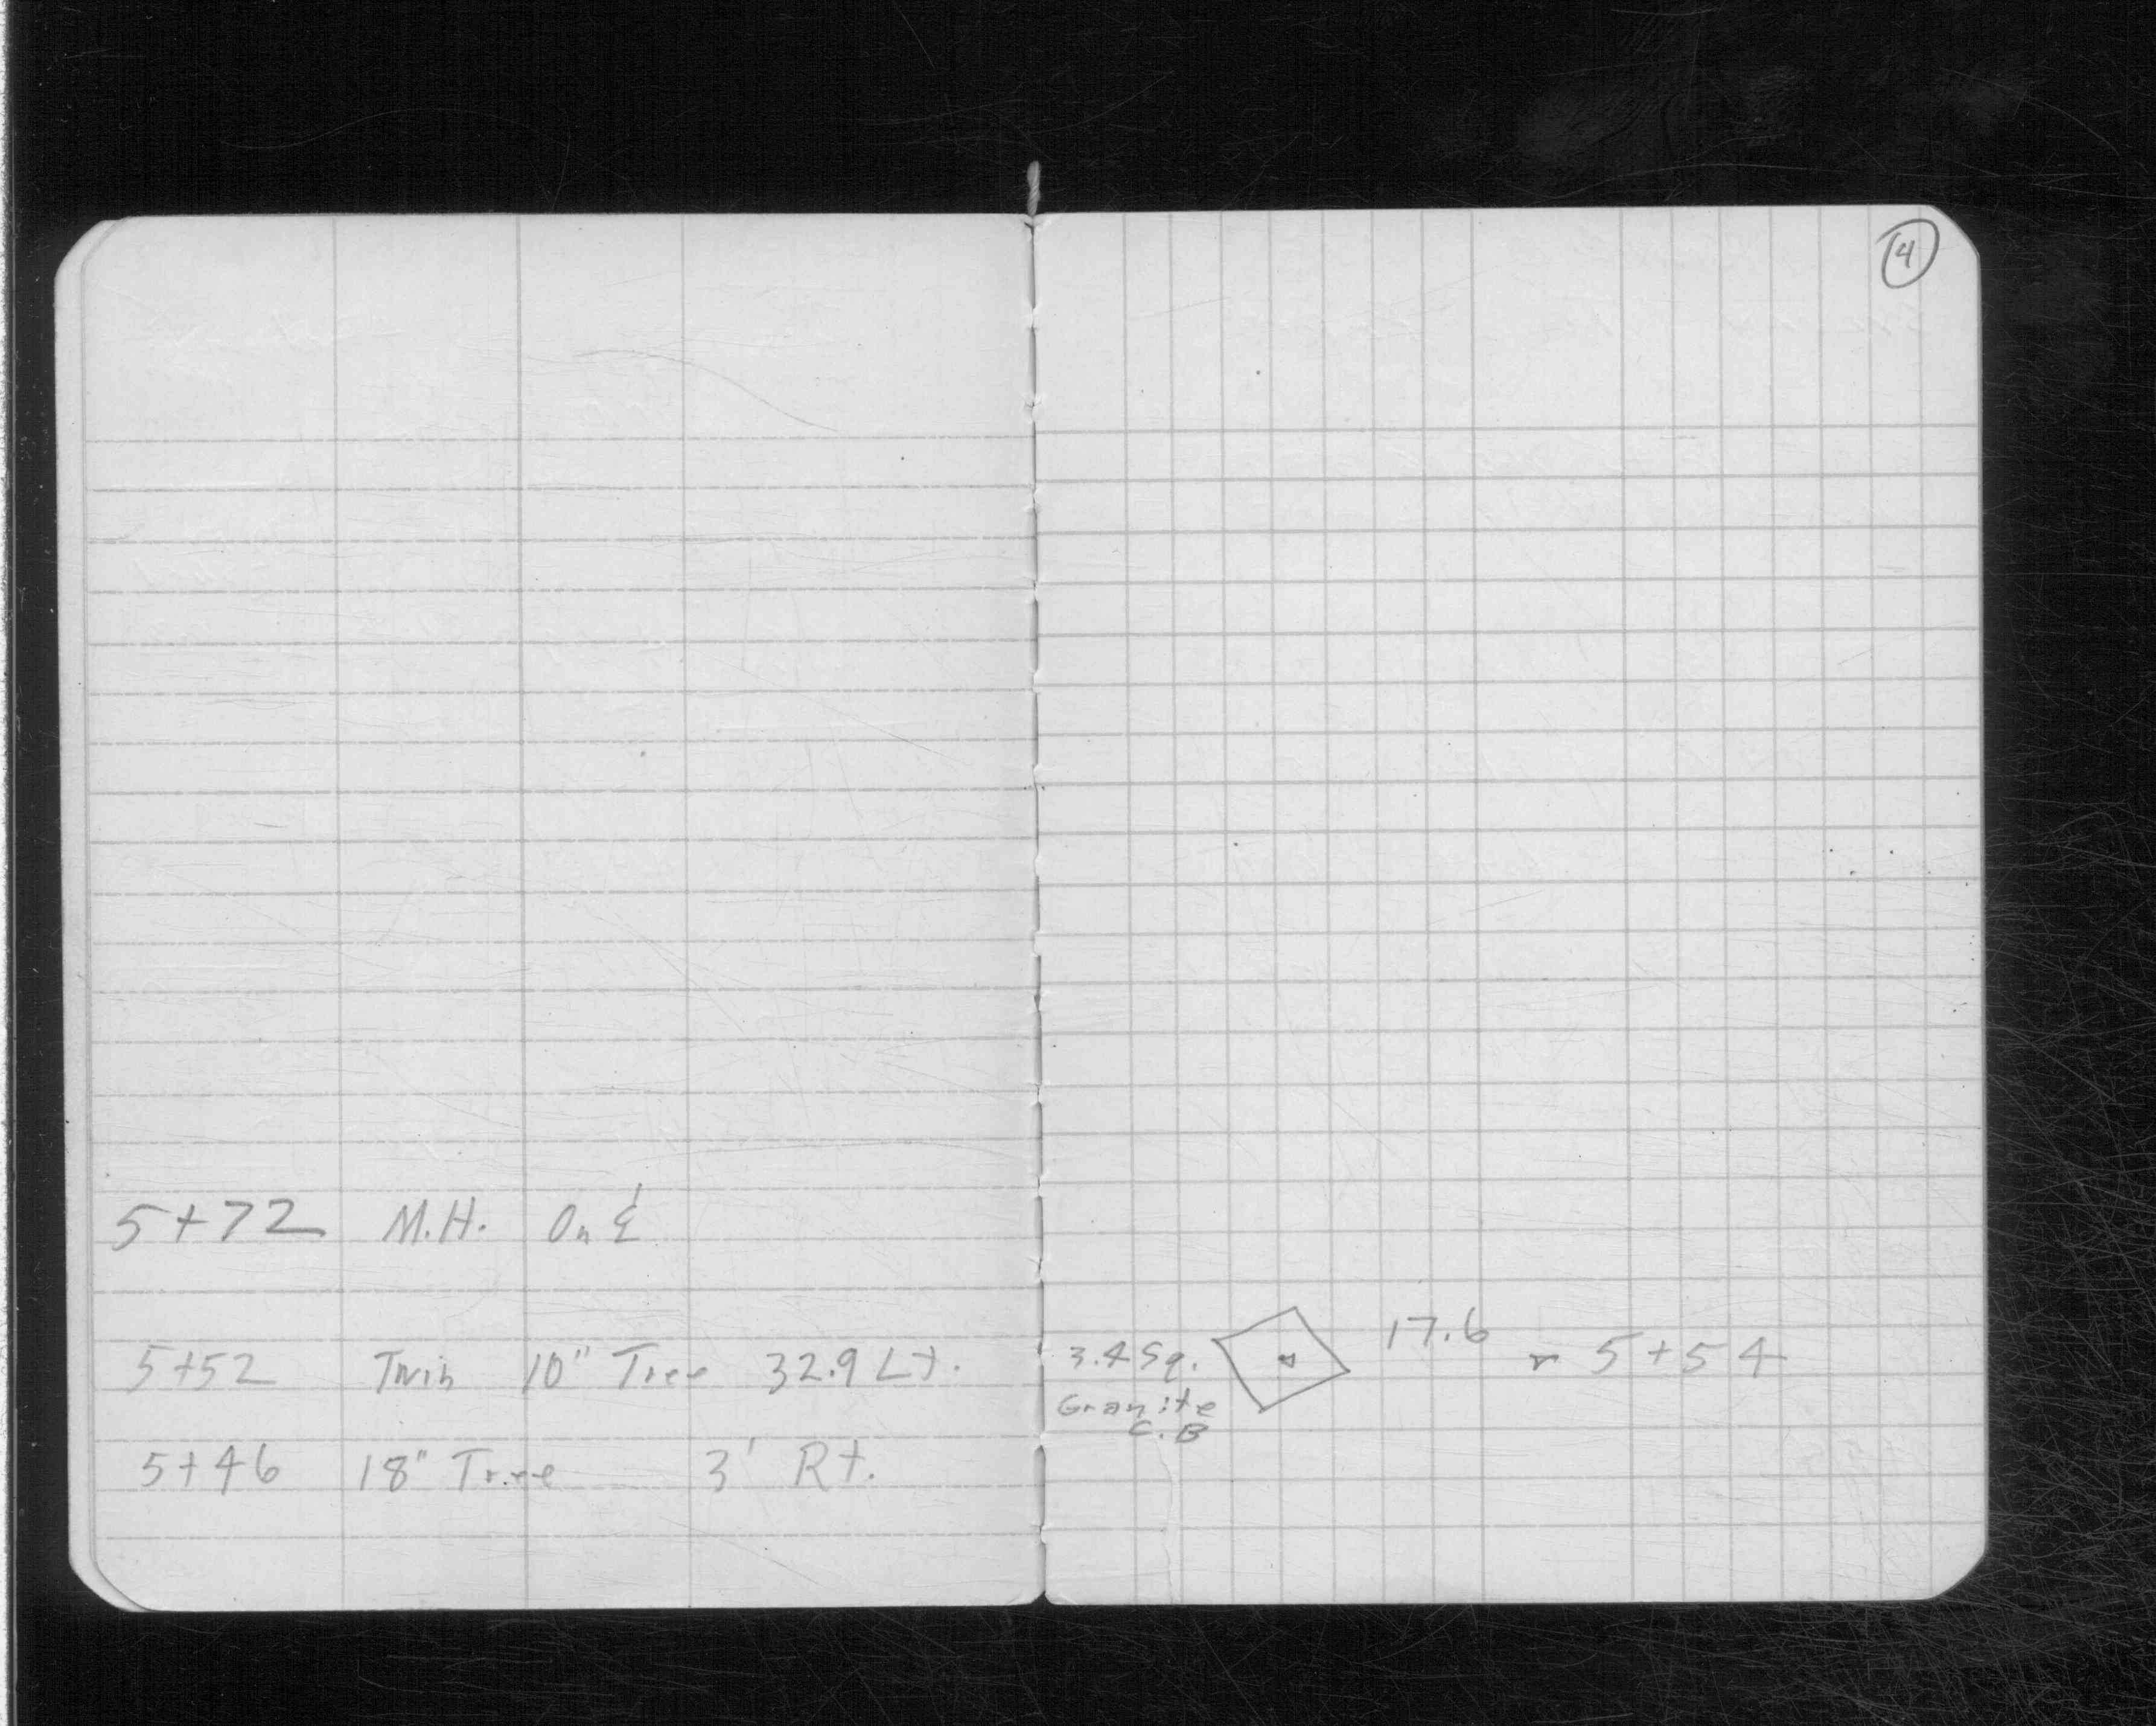 4
5+72 M.H. On ℄
5+52 Twin 10" Tree 32.9 Lt.
5+46 18" Tree 3' Rt.
3.4 Sq. 17.6 5+54
Granite
C.B